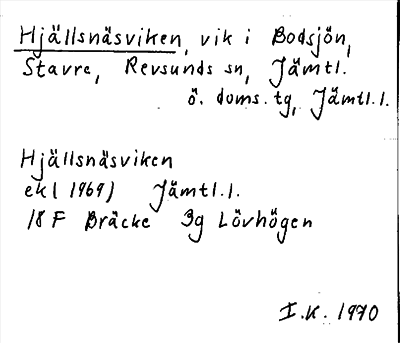 Hjällsnäsviken, vik i Bodsjön,
Stavre, Revsunds sn, Jämtl.
ö. doms. tg, Jämtl. l.
Hjällsnäsviken
ekl (1969) Jämtl. l.
18 F Bräcke 3g Lövhögen
I.K. 1970